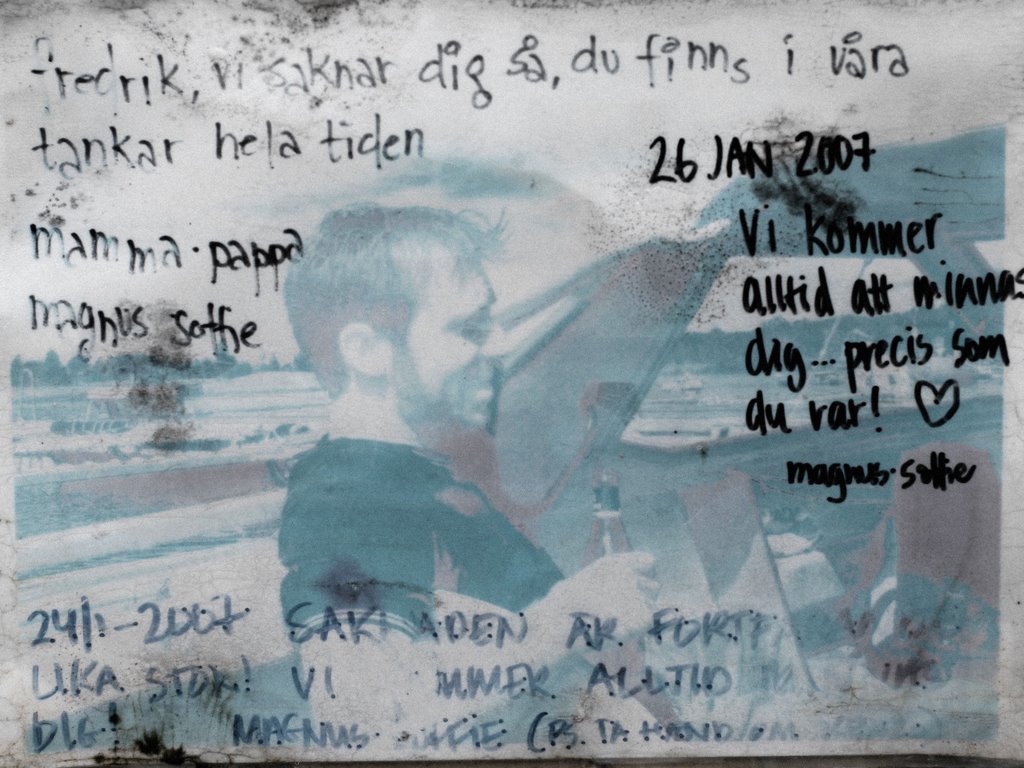 fredrik, vi saknar dig så, du finns i våra
tankar hela tiden
mamma · pappa
magnus soffie
26 JAN 2007
Vi kommer
alltid att minnas
dig... precis som
du var! ♡
magnus · soffie
24/1-2007 SAKNADEN ÄR FORTF
LIKA STOR! VI KOMMER ALLTID
DIG! MAGNUS SOFFIE (PS. TA HAND OM